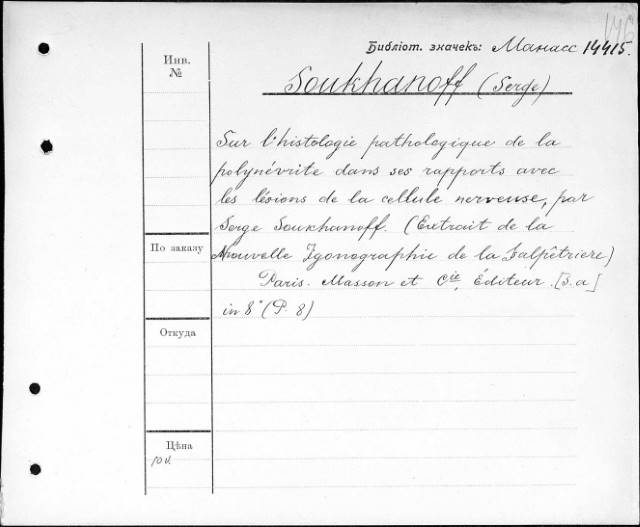 146
Библіот. значекъ: Манасс 14415.
Инв.
№
Soukhanoff (Serge)
Sur l'histologie pathologique de la
polynévrite dans ses rapports avec
les lésions de la cellule nerveuse, par
Serge Soukhanoff. (Extrait de la
По заказу
Nouvelle Igonographie de la Salpêtriere)
Paris. Masson et Cie, Éditeur. [S. a]
in 8° (P. 8)
Откуда
Цѣна